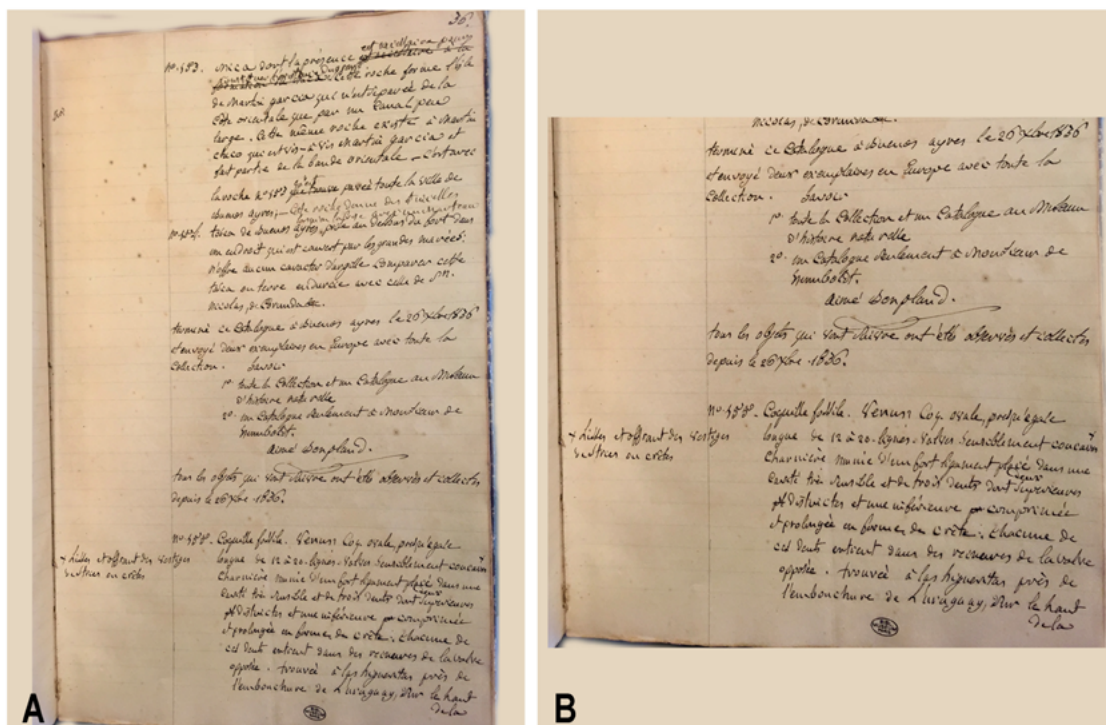 36.
nº 583. mica dont la présence est
cette roche forme l'isle
de Martin garcia qui n'est separée de la
Côte orientale que par un Canal peu
large. Cette même roche existe à Martin
chico qui est vis-à-vis Martin garcia et
fait partie de la bande orientale - C'est avec
la roche nº 583 pavée toute la ville de
Buenos ayres, - Cette roche donne des étincelles
nº 584. tosca de Buenos ayres, prise au dessous du fort dans
un endroit qui est couvert par les grandes marées:
n'offre aucun caractere d'argille Comparer cette
tosca ou terre endurcie avec celle de Sn.
nicolas, de
terminé ce Catalogue à Buenos ayres le 26 Xbre 1836
et envoyé deux exemplaires en Europe avec toute la
Collection. Savoir
1º. toute la Collection et un Catalogue au Muséum
d'histoire naturelle
2º. un Catalogue seulement à Monsieur de
humboldt.
Aimé Bonpland.
tous les objets qui vont suivre ont été observés et collectés
depuis le 26 Xbre 1836.
nº 585. Coquille fossile. Venus. Coq. ovale, presqu'egale
+ Lisses et offrant des vestiges
de stries en crêtes
longue de 12 à 20 lignes. Valves sensiblement concaves
Charnière munie d'un fort ligament placé dans une
Cavité très sensible et de trois dents dont superieures
distinctes et une inférieure comprimée
et prolongée en forme de crête. chacune de
ces dents entrent dans des de la valve
opposée. trouvée à las higueritas près de
l'embouchure de L'uruguay, sur le haut
de la
A
nicolas, de
terminé ce Catalogue à Buenos ayres le 26 Xbre 1836
et envoyé deux exemplaires en Europe avec toute la
Collection. Savoir
1º. toute la Collection et un Catalogue au Muséum
d'histoire naturelle
2º. un Catalogue seulement à Monsieur de
humboldt.
Aimé Bonpland.
tous les objets qui vont suivre ont été observés et collectés
depuis le 26 Xbre 1836.
nº 585. Coquille fossile. Venus. Coq. ovale, presqu'egale
+ Lisses et offrant des vestiges
de stries en crêtes
longue de 12 à 20 lignes. Valves sensiblement concaves
Charnière munie d'un fort ligament placé dans une
Cavité très sensible et de trois dents dont superieures
distinctes et une inférieure comprimée
et prolongée en forme de crête. chacune de
ces dents entrent dans des de la valve
opposée. trouvée à las higueritas près de
l'embouchure de L'uruguay, sur le haut
de la
B